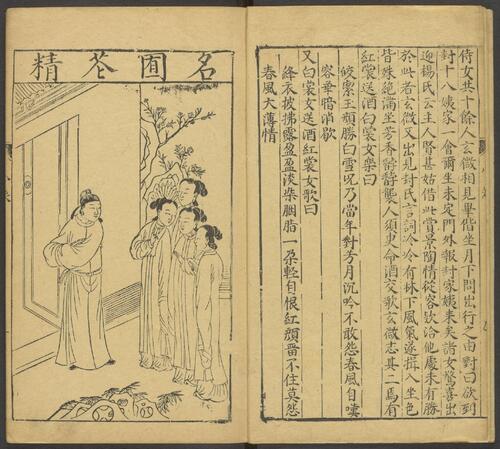 侍女共十餘人玄微相見畢偕坐月下問出行之由對曰欲到
封十八姨家一會爾坐未定門外報封家姨來矣諸女驚喜出
迎楊氏云主人賢甚姑借此賞景陶情從容歡洽他處未有勝
於此者玄微又出見封氏言詞泠泠有林下風氣遂揖入坐色
皆殊絕滿坐芳香馞馞襲人須臾命酒交歌玄微志其二焉有
紅裳送酒白裳女樂曰
皎潔玉顏勝白雪况乃當年對芳月沉吟不敢怨春風自嘆
容華暗消歇
又白裳女送酒紅裳女歌曰
絳衣披拂露盈盈淡染胭脂一朵輕自恨紅顏畱不住莫怨
春風大薄情
名囿花精